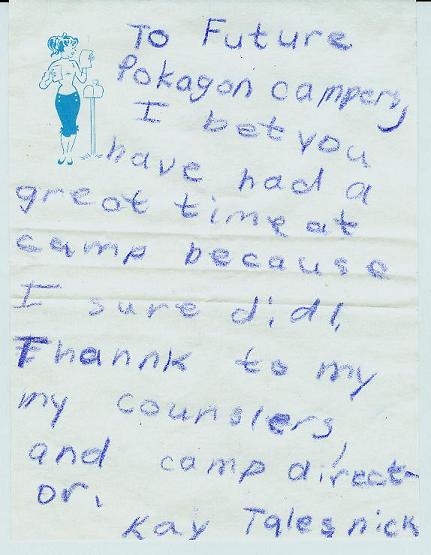 To Future
Pokagon campers,
I bet you
have had a
great time at
camp because
I sure did!
Thannk to my
my counslers,
and camp direct-
or.
Kay Talesnick